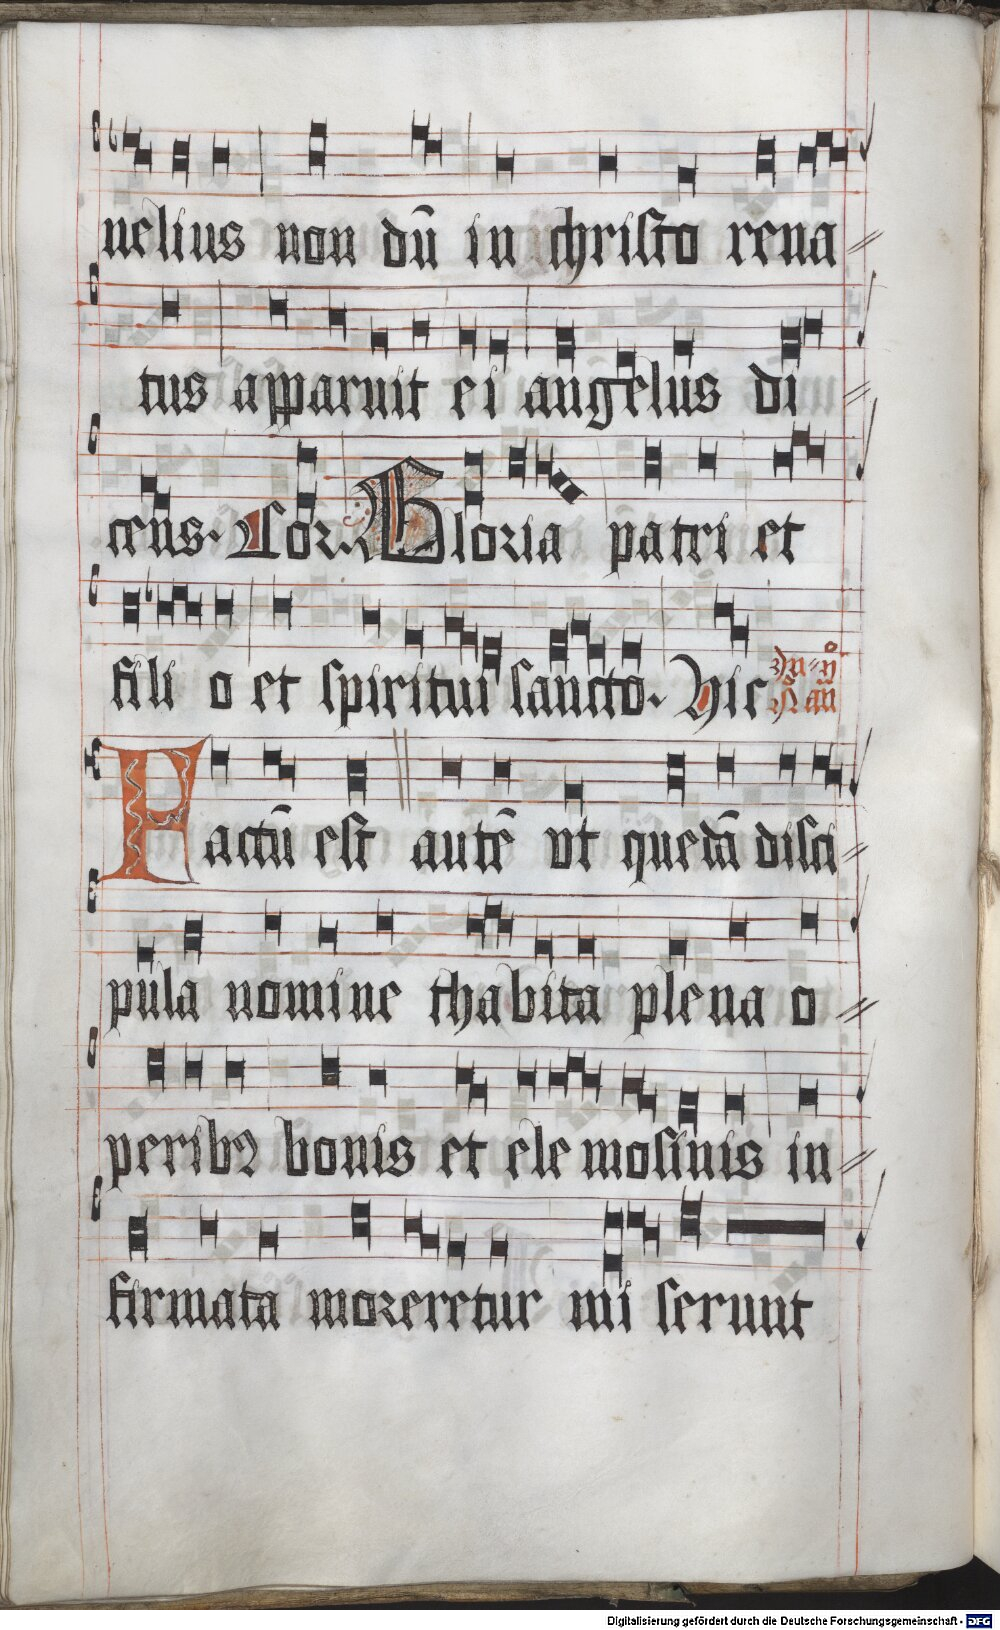 nelius non dū in christo rena
tus apparuit ei angelus di
cens. Cor. Gloria patri et
fili o et spiritui sancto. Hic
Factū est autē vt quedā disci
pula nomine thabita plena o
peribꝫ bonis et ele mosinis in
firmata moreretur mi serunt
Digitalisierung gefördert durch die Deutsche Forschungsgemeinschaft - DFG